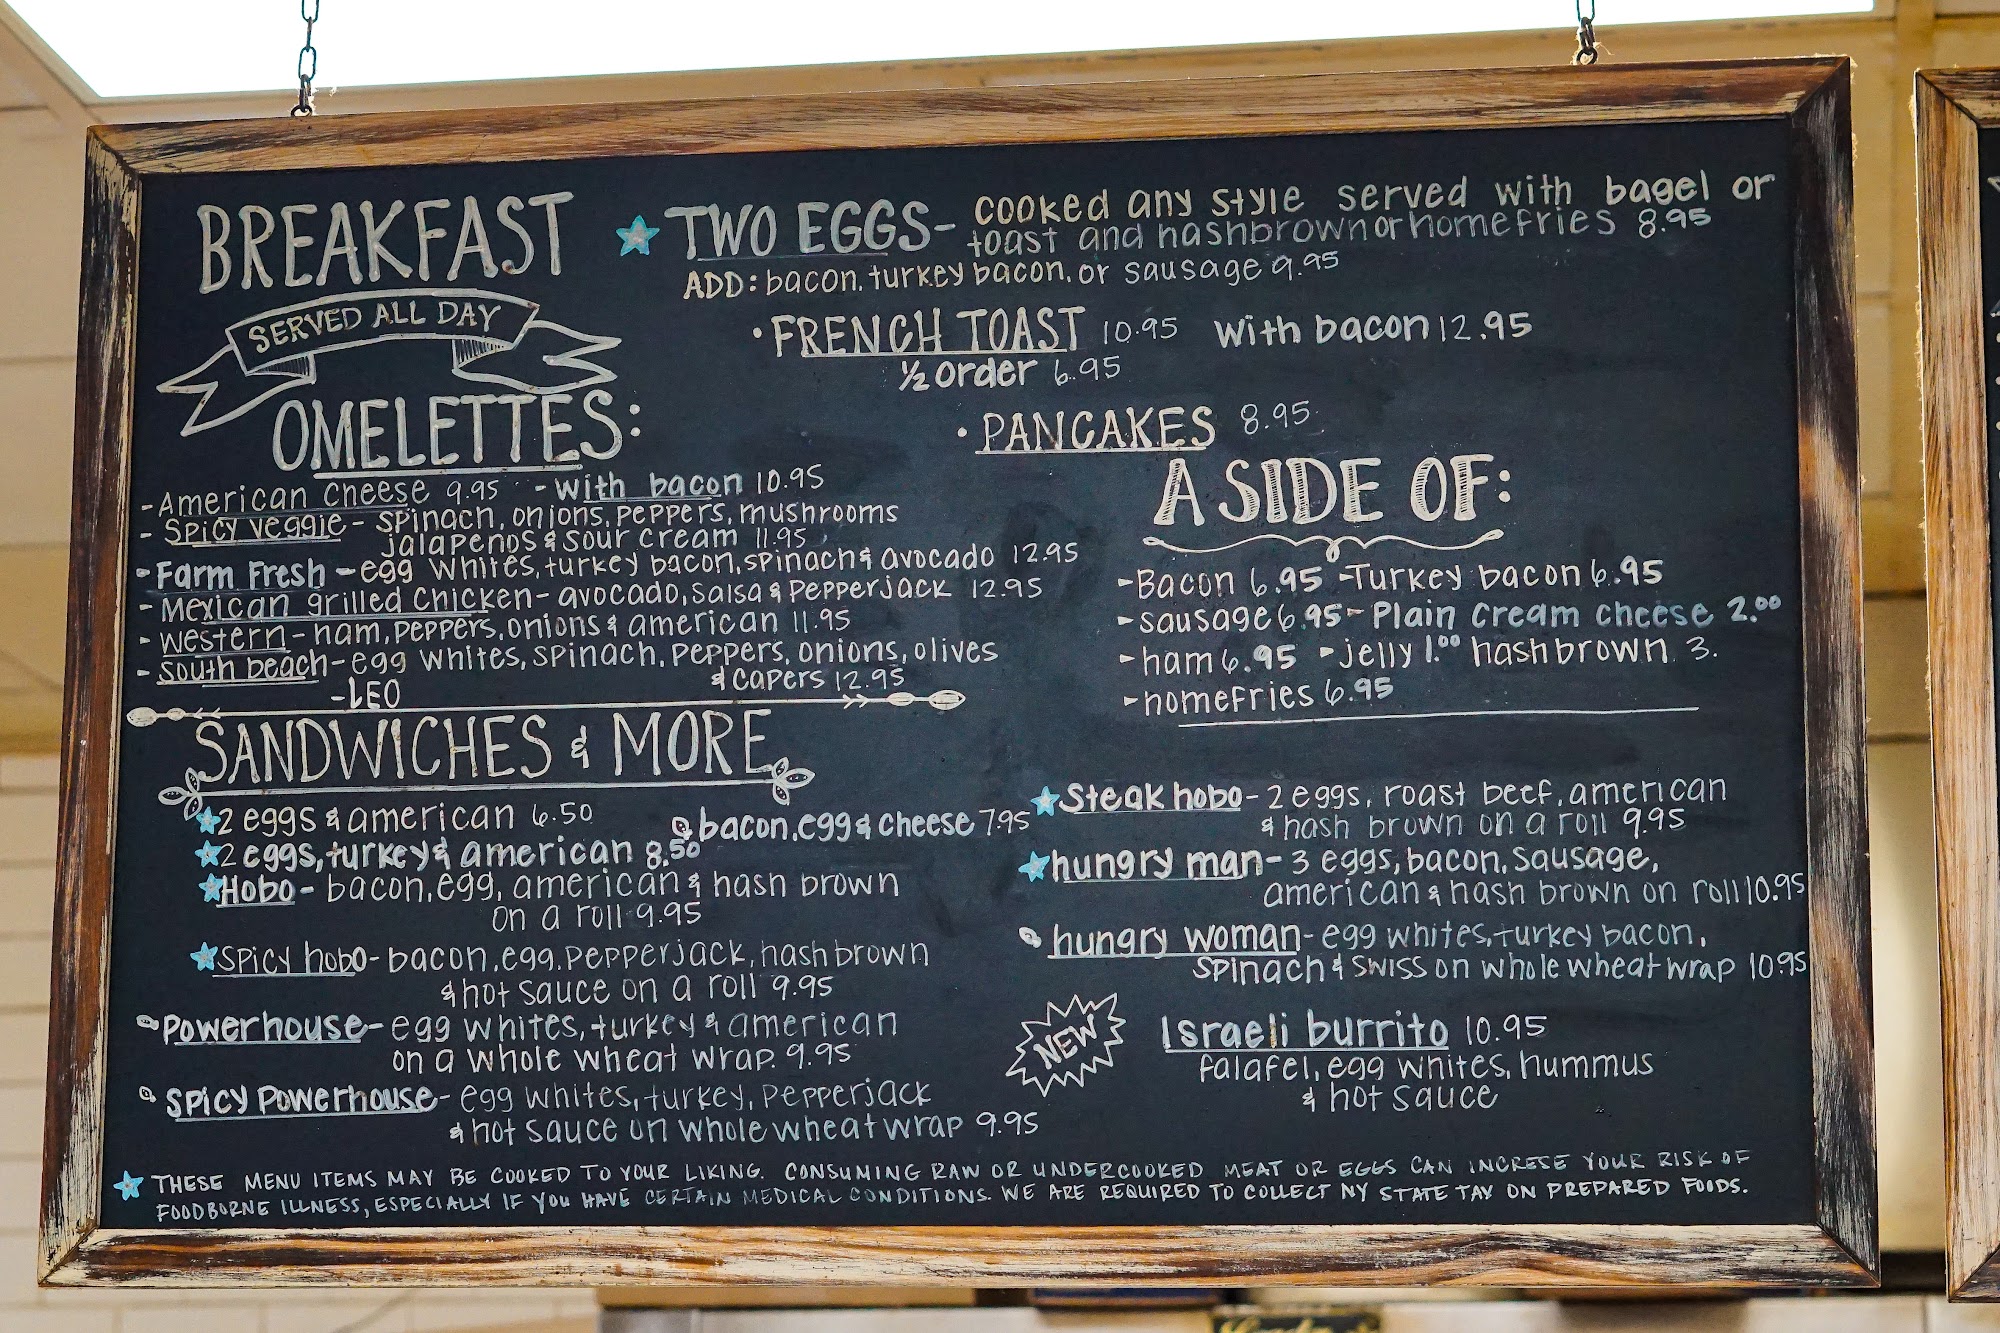 BREAKFAST
SERVED ALL DAY
TWO EGGS- cooked any style served with bagel or
toast and hashbrown or homefries 8.95
ADD: bacon, turkey bacon, or sausage 9.95
• FRENCH TOAST 10.95 with bacon 12.95
½ order 6.95
• PANCAKES 8.95
OMELETTES:
- American cheese 9.95 - with bacon 10.95
- Spicy veggie - spinach, onions, peppers, mushrooms
jalapenos & sour cream 11.95
- Farm Fresh - egg whites, turkey bacon, spinach & avocado 12.95
- Mexican grilled chicken - avocado, salsa & pepperjack 12.95
- western - ham, peppers, onions & american 11.95
- South beach - egg whites, spinach, peppers, onions, olives
& capers 12.95
- LEO
A SIDE OF:
- Bacon 6.95 - Turkey bacon 6.95
- sausage 6.95 - Plain cream cheese 2.00
- ham 6.95 - jelly 1.00 hashbrown 3.
- homefries 6.95
SANDWICHES & MORE
2 eggs & american 6.50
bacon, egg & cheese 7.95
2 eggs, turkey & american 8.50
Hobo - bacon, egg, american & hash brown
on a roll 9.95
Spicy hobo - bacon, egg, pepperjack, hashbrown
& hot sauce on a roll 9.95
Powerhouse - egg whites, turkey & american
on a whole wheat wrap. 9.95
Spicy Powerhouse - egg whites, turkey, pepperjack
& hot sauce on whole wheat wrap 9.95
Steak hobo - 2 eggs, roast beef, american
& hash brown on a roll 9.95
hungry man - 3 eggs, bacon, sausage,
american & hash brown on roll 10.95
hungry woman - egg whites, turkey bacon,
spinach & swiss on whole wheat wrap 10.95
NEW
Israeli burrito 10.95
falafel, egg whites, hummus
& hot sauce
THESE MENU ITEMS MAY BE COOKED TO YOUR LIKING. CONSUMING RAW OR UNDERCOOKED MEAT OR EGGS CAN INCRESE YOUR RISK OF
FOODBORNE ILLNESS, ESPECIALLY IF YOU HAVE CERTAIN MEDICAL CONDITIONS. WE ARE REQUIRED TO COLLECT NY STATE TAX ON PREPARED FOODS.